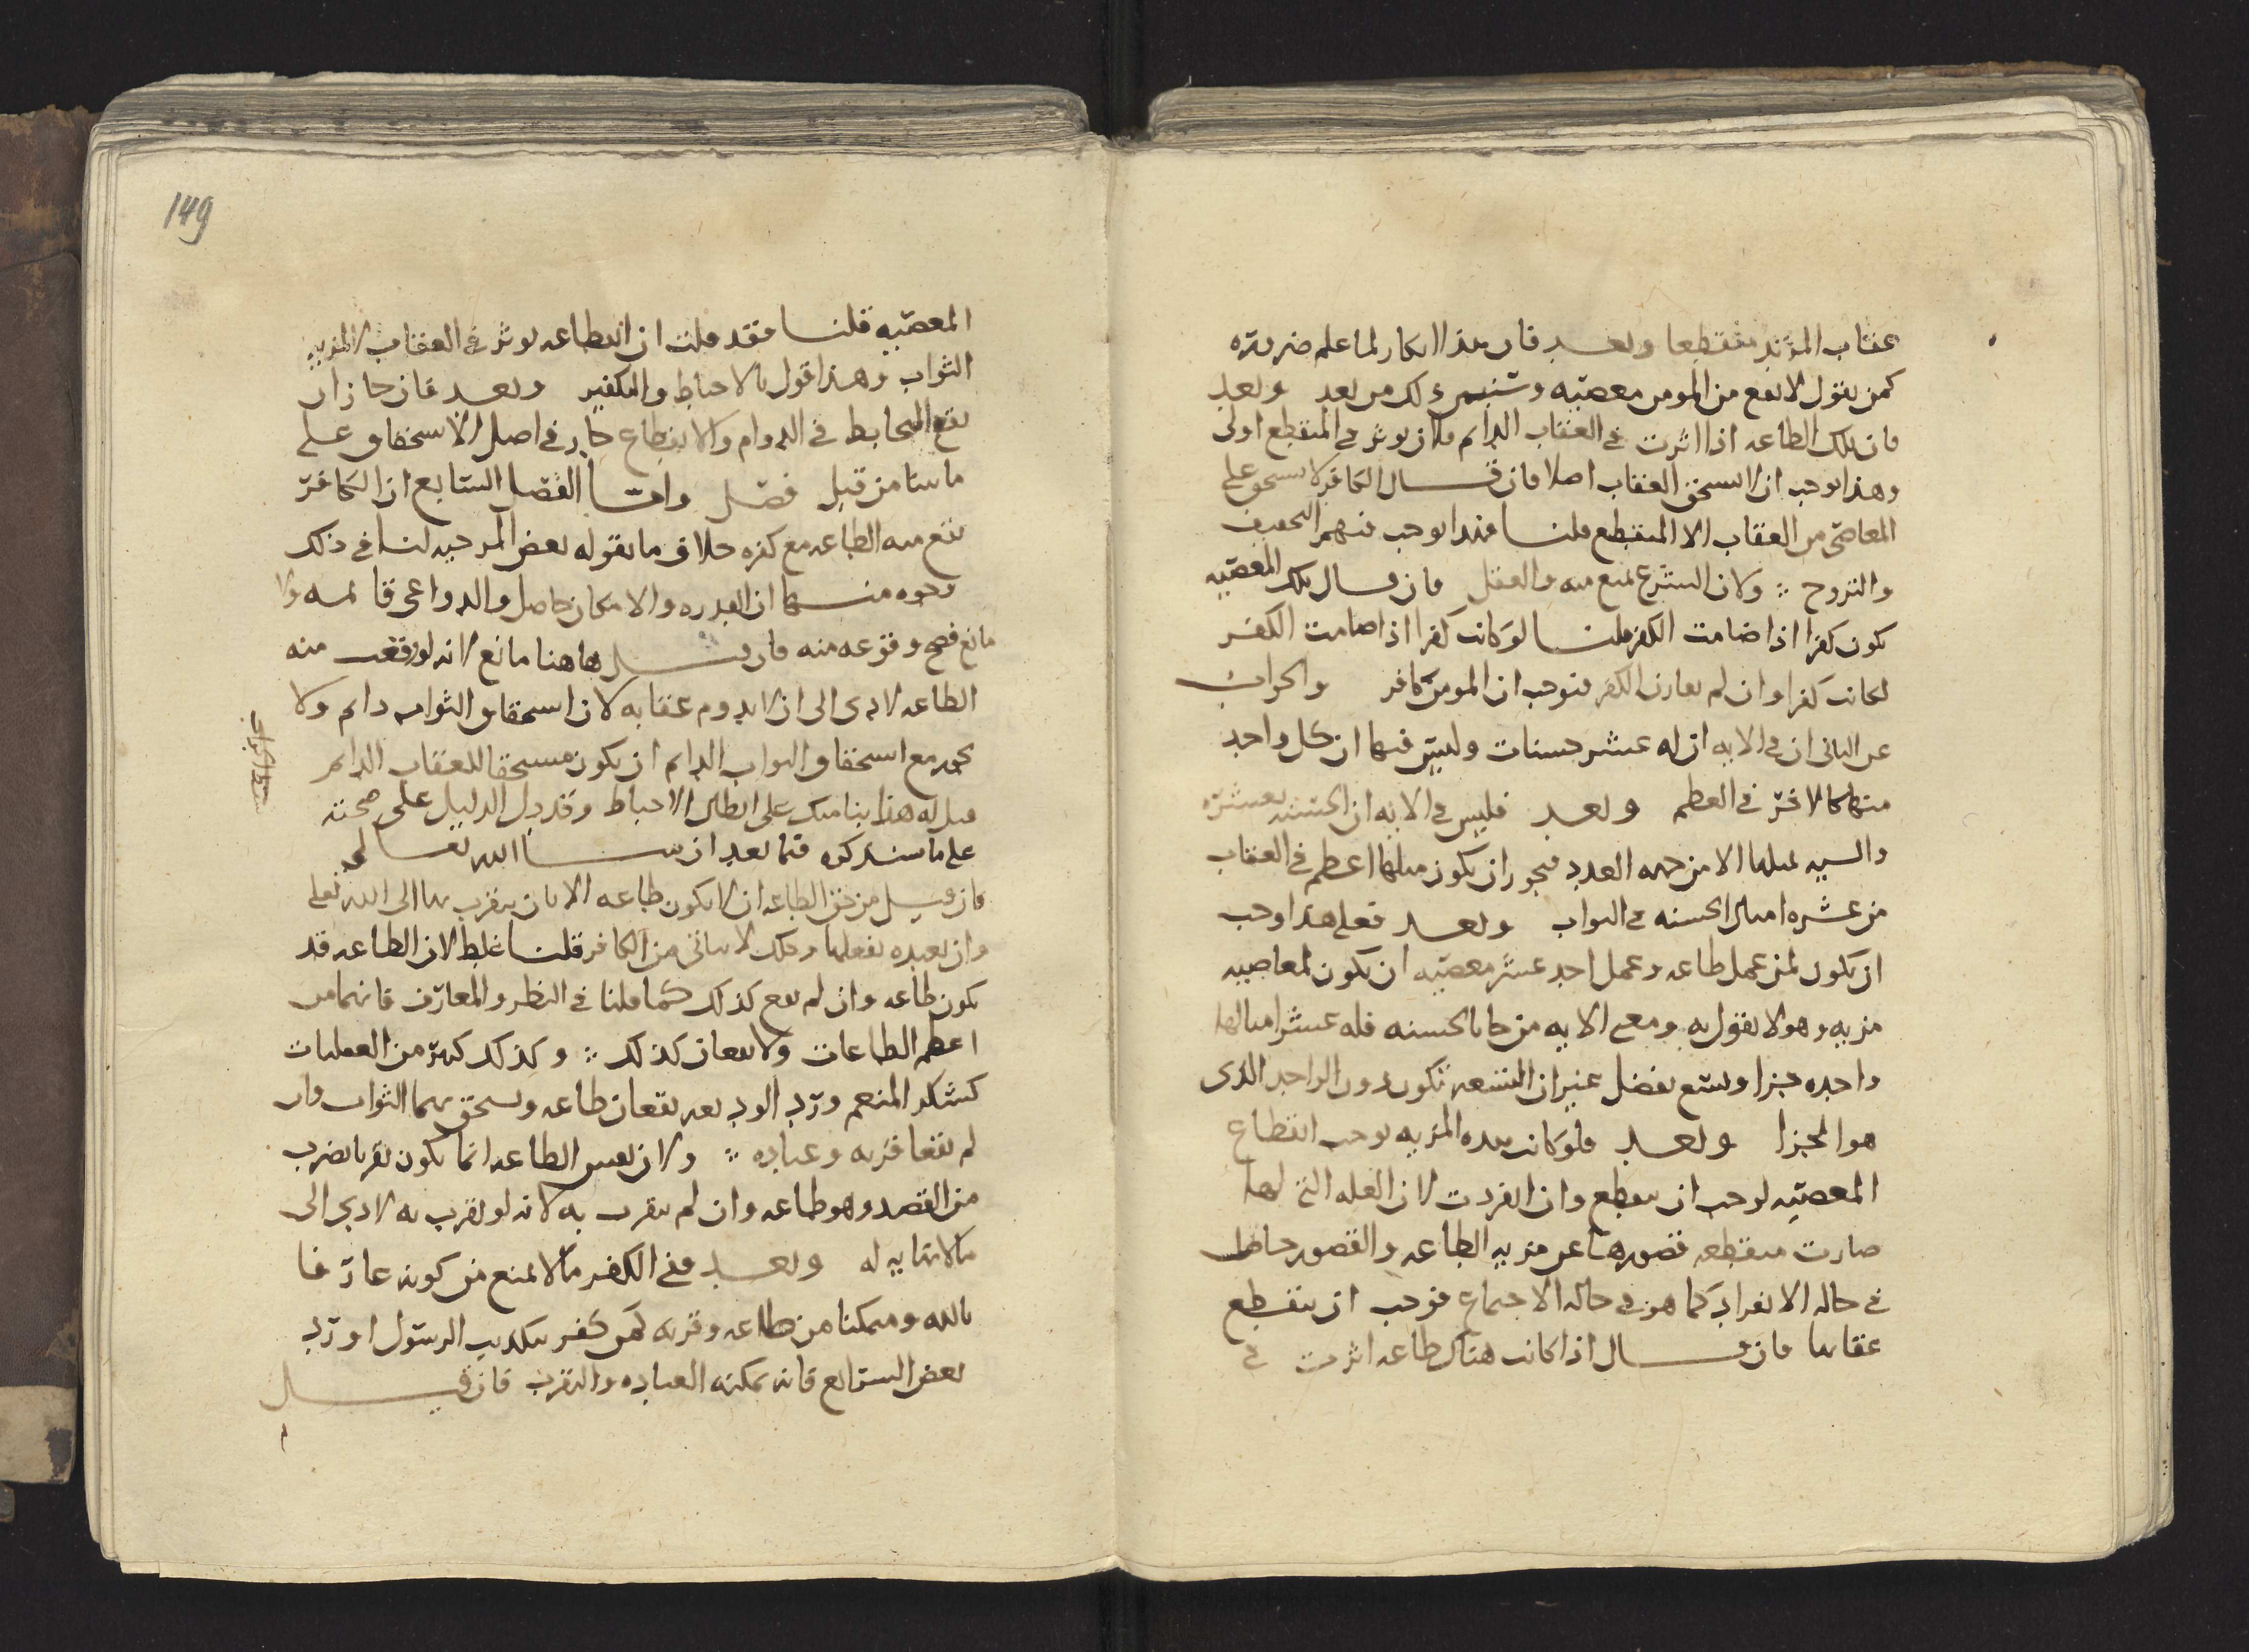 عقاب المرتد منقطعا وبعد فان هذا انكار لما علم ضرورة
كمن يقول لا يقع من المومن معصيه وسنبين ذلك من بعد وبعد
فان تلك الطاعه اذا اثرت في العقاب الدايم فلان يوثر في المنقطع اولى
وهذا يوجب ان لا يستحق العقاب اصلا فان قال الكافر لا يستحق على
المعاصي من العقاب الا المنقطع قلنا فهذا يوجب فيهم التخفيف
والتروح ⁘ ولان الشرع يمنع منه والعقل فان قال تلك المعصيه
تكون كفرا اذا ضامت الكفر قلنا لو كانت كفرا اذا ضامت الكفر
لكانت كفرا وان لم يقارن الكفر فيوجب ان المومن كافر والجواب
عن الثاني ان في الايه ان له عشر حسنات وليس فيها ان كل واحد
منها كالاخر في العظم وبعد فليس في الايه ان الحسنه بعشرة
والسيه بمثلها الا من جهه العدد فيجوز ان يكون مثلها اعظم في العقاب
من عشره امثال الحسنه في الثواب وبعد فعلى هذا اوجب
ان يكون لمن عمل طاعه وعمل احد عشر معصيه ان يكون لمعاصيه
مزيه وهو لا يقول به ومعنى الايه من جا بالحسنه فله عشر امثالها
واحده جزا وتسع بفضل غير ان التسعه تكون دون الواحد الذى
هو الجزا وبعد فلو كانت هذه المزيه توجب انقطاع
المعصيه لوجب ان ينقطع وان انفردت لان العله التي لها
صارت منقطعه قصورها عن مزيه الطاعه والقصور حاصل
في حاله الانفراد كما هو في حاله الاجتماع فوجب ان ينقطع
عقابها فان قال اذا كانت هناك طاعه اثرت في
149
المعصيه قلنا فقد قلت ان الطاعه يوثر في العقاب لمزيه
الثواب وهذا قول بالاحباط والتكفير وبعد فان جاز ان
يقع التحابط في الدوام والانقطاع جاز في اصل الاستحقاق على
ما بينا من قبل فصل واما الفصل السابع ان الكافر
يقع منه الطاعه مع كفره خلاف ما يقوله بعض المرجيه لنا في ذلك
وجوه منها ان القدره والامكان حاصل والدواعي قائمه ولا
مانع فصح وقوعه منه فان قيل هاهنا مانع لانه لو وقعت منه
الطاعه لادى الى ان لا يدوم عقابه لان استحقاق الثواب دايم ولا
يجوز مع استحقاق الثواب الدايم ان يكون مستحقا للعقاب الدايم
قيل له هذا بنا منك على ابطال الاحباط وقد دل الدليل على صحته
على ما سنذكره فيما بعد ان شا الله تعالى
فان قيل من حق الطاعه ان لا يكون طاعه الا بان يتقرب بها الى الله تعلى
وان يعبده بفعلها وذلك لا يتاتى من الكافر قلنا غلط لان الطاعه قد
تكون طاعه وان لم يقع كذلك كما قلنا في النظر والمعارف فانهما من
اعظم الطاعات ولا يقعان كذلك ⁘ وكذلك كثير من العقليات
كشكر المنعم ورد الوديعه يقعان طاعه ويستحق بهما الثواب وان
لم يقعا قربه وعباده ⁘ ولان نفس الطاعه انما يكون تقربا بضرب
من القصد وهو طاعه وان لم يتقرب به لانه لو تقرب به لادى الى
ما لا نهايه له وبعد ففي الكفر ما لا يمنع من كونه عارفا
بالله وممكنا من طاعه وقربه كمن كفر بتكذيب الرسول او رد
بعض الشرايع فانه يمكنه العباده والتقرب فان قيل